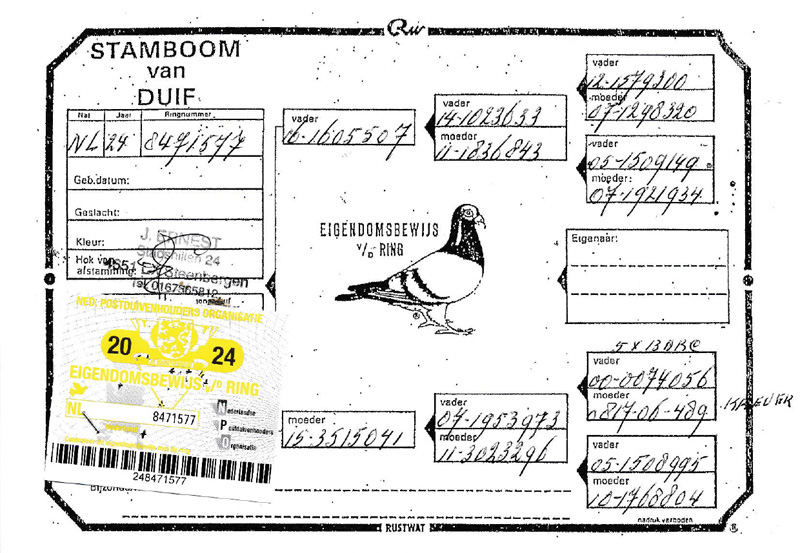 Rw
STAMBOOM
van
DUIF
Nat Jaar Ringnummer
NL 24 8471577
Geb.datum:
Geslacht:
Kleur:
Hok van
afstamming:
J. ERNEST
Stadshillen 24
4651 Steenbergen
Tel 0167565812
vader
16-1605507
vader
14-1023633
moeder
11-1836843
vader
12-1579300
moeder
07-1298320
vader
05-1509149
moeder:
07-1921934
EIGENDOMSBEWIJS
V/D RING
Eigenaar:
NED. POSTDUIVENHOUDERS ORGANISATIE
20 24
EIGENDOMSBEWIJS V/D RING
NL 8471577
Nederlandse
Postduivenhouders
Organisatie
248471577
moeder
15-3515041
vader
04-1953973
moeder
11-3023296
5 X 13
vader
00-0074056
moeder
0817-06-489
vader
05-1508995
moeder
10-1768804
RUSTWAT
nadruk verboden